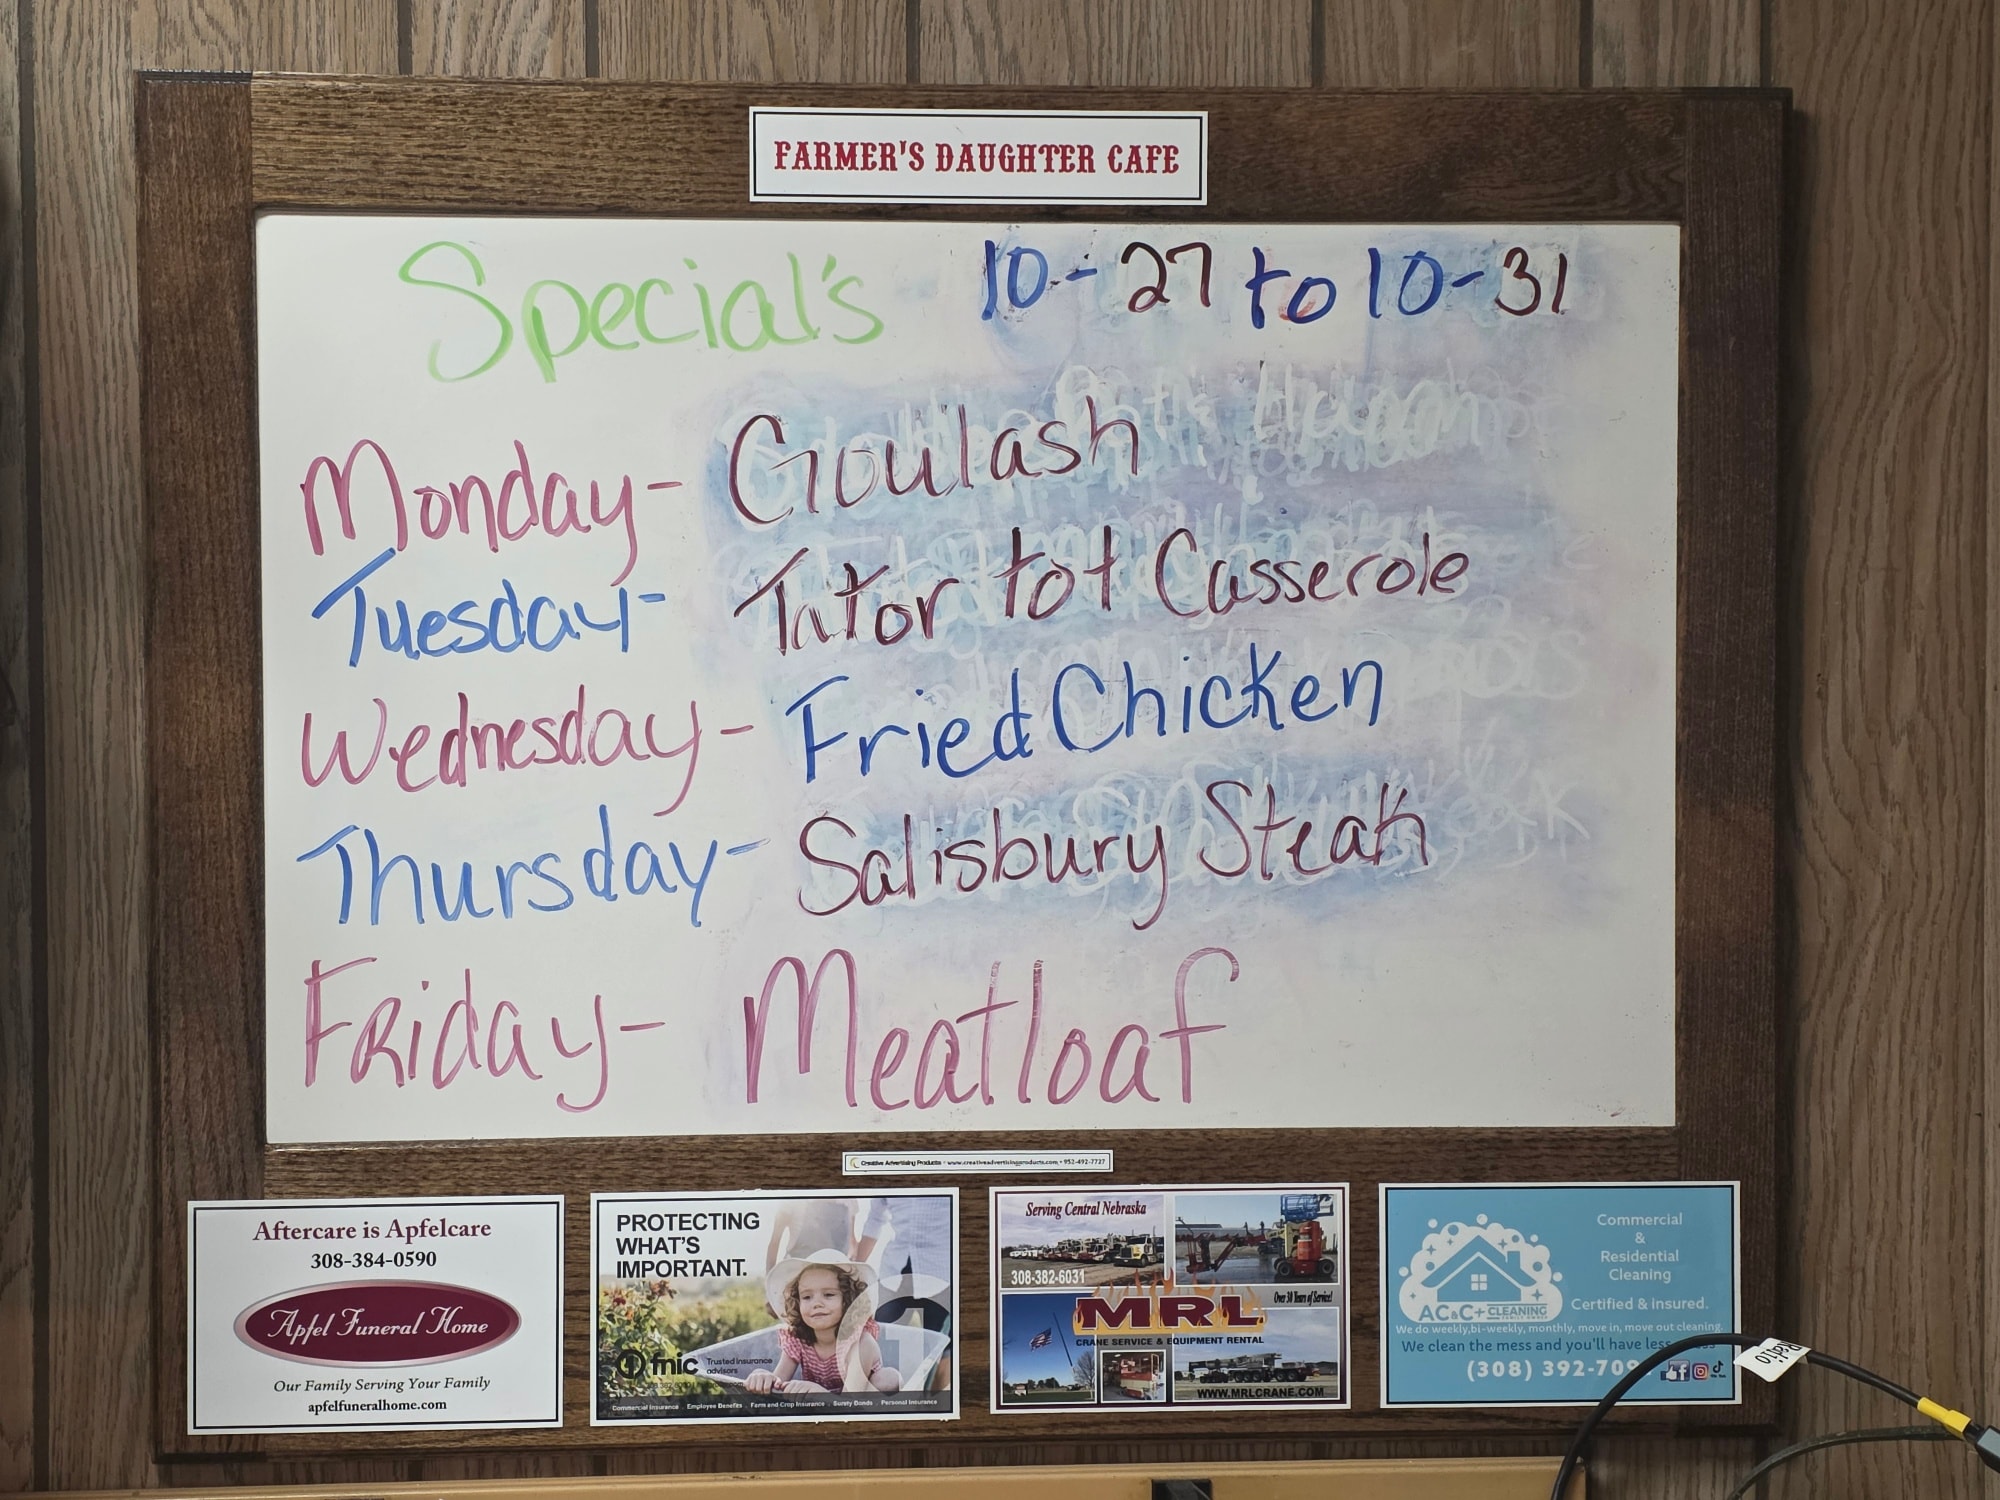 FARMER'S DAUGHTER CAFE
Special's 10-27 to 10-31
Monday- Goulash
Tuesday- Tator tot Casserole
Wednesday- Fried Chicken
Thursday- Salisbury Steak
Friday- Meatloaf
Creative Advertising Products • www.creativeadvertisingproducts.com • 952-492-7727
Aftercare is Apfelcare
308-384-0590
Apfel Funeral Home
Our Family Serving Your Family
apfelfuneralhome.com
PROTECTING
WHAT'S
IMPORTANT.
fnic Trusted insurance
advisors
Commercial Insurance . Employee Benefits . Farm and Crop Insurance . Surety Bonds . Personal Insurance
Serving Central Nebraska
308-382-6031
Over 30 Years of Service!
MRL
CRANE SERVICE & EQUIPMENT RENTAL
WWW.MRLCRANE.COM
Commercial
&
Residential
Cleaning
Certified & insured.
AC&C+ CLEANING
We do weekly,bi-weekly, monthly, move in, move out cleaning.
We clean the mess and you'll have less
(308) 392-709
Radio